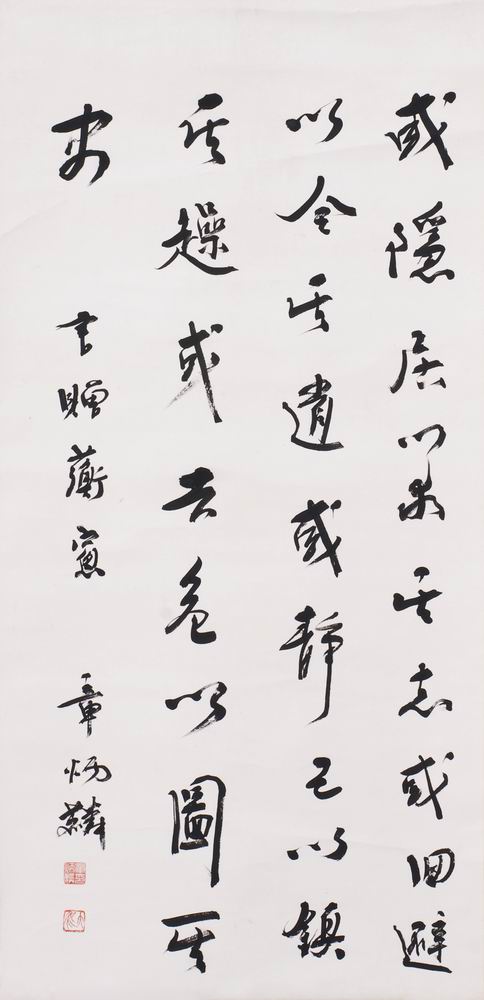 或隱居以求其志或回避
以全其道或靜己以鎮
其趮或去危以圖其
安 書贈蘅窻 章炳麟